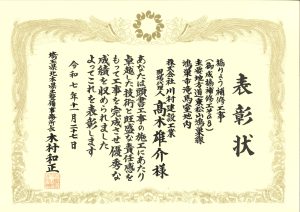 表彰状
橋りょう補修工事
(御成橋補修工その6)
主要地方道東松山鴻巣線
鴻巣市滝馬室地内
株式会社川村建設工業
現場代理人
髙木雄介様
あなたは頭書工事の施工にあたり
卓越した技術と旺盛な責任感を
もって工事を完成させ優秀な
成績を収められました
よってこれを表彰します
令和七年十一月二十七日
埼玉県北本県土整備事務所長木村和正